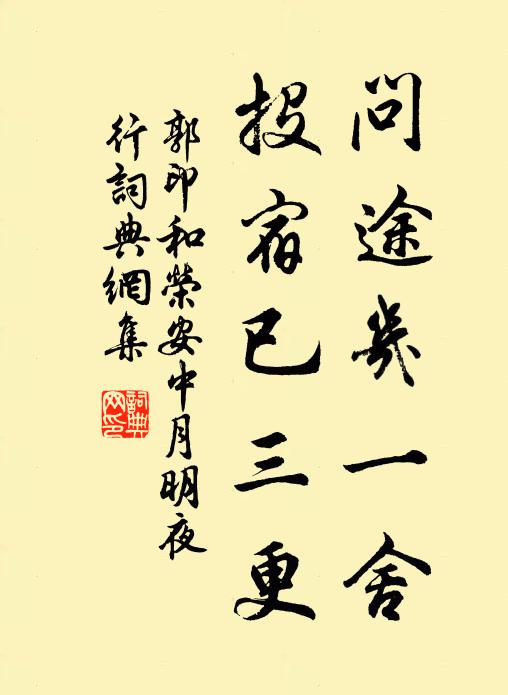 問途幾一舍
投宿已三更
郭印和榮安中月明夜
行詞典網集
詞典
网印